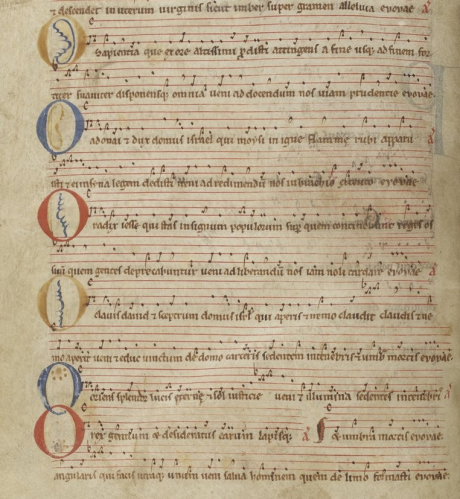 & descendet in uterum virginis sicut imber super gramen alleluia evovae a
O sapientia que ex ore altissimi prodisti attingens a fine usq; ad finem for
titer suaviter disponensq; omnia veni ad docendum nos viam prudencie evovae
O adonai & dux domus israel qui moysi in igne flamme rubi apparu a
isti & ei in syna legem dedisti veni ad redimendū nos in brachio extento evovae
O radix iesse qui stas in signum populorum sup quem continebunt reges os
suū quem gentes deprecabuntur veni ad liberandū nos iam noli tardare evovae a
O clavis david & sceptrum domus isrl qui aperis & nemo claudit claudis & ne
mo aperit veni & educ vinctum de domo carceris sedentem in tenebris & umb mortis evovae
O oriens splendor lucis eterne & sol iusticie veni & illumina sedentes in tenebris a
O rex gentium & desideratus earum lapisq; a & umbra mortis evovae
angularis qui facis utraq; unum veni salva hominem quem de limo formasti evovae